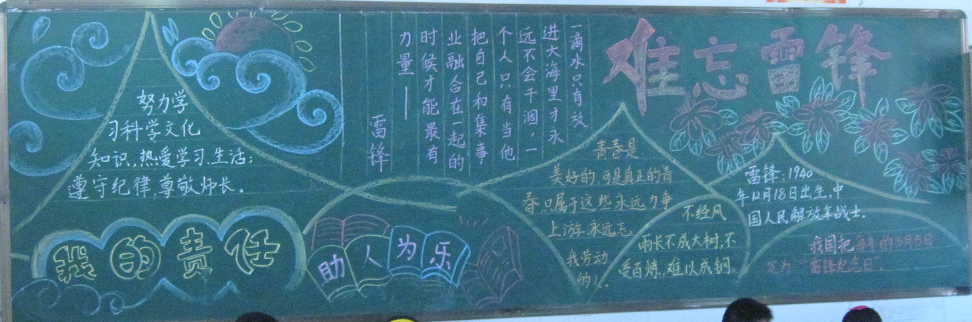 难忘雷锋
努力学
习科学文化
知识,热爱学习、生活;
遵守纪律,尊敬师长。
我的责任
一滴水只有放
进大海里才永
远不会干涸,一
个人只有当他
把自己和集事
业融合在一起的
时候才能最有
力量——
雷锋
助人为乐
青春是
美好的,可是真正的青
春只属于这些永远力争
上游,永远忘
我劳动
的人
不经风
雨长不成大树,不
受百炼,难以成钢
雷锋:1940
年12月18日出生,中
国人民解放军战士.
我国把每年的3月5日
定为“雷锋纪念日”.